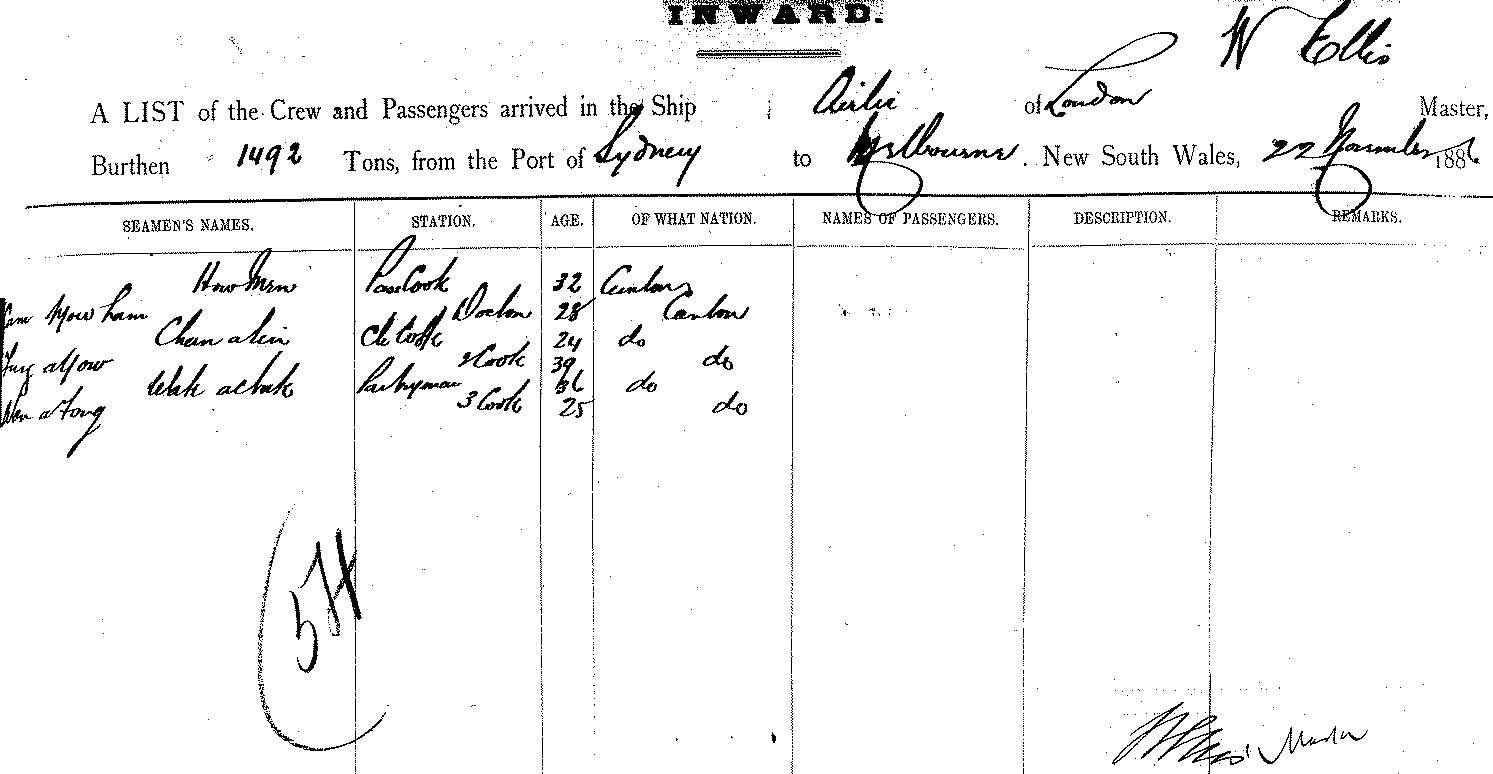 INWARD.
W Ellis
A LIST of the Crew and Passengers arrived in the Ship Airlie of London Master,
Burthen 1492 Tons, from the Port of Sydney to Melbourne. New South Wales, 22 November 1886
SEAMEN'S NAMES. STATION. AGE. OF WHAT NATION. NAMES OF PASSENGERS. DESCRIPTION. REMARKS.
Cook 32 Canton
Yow ham Doctor 28 Canton
Chun akin Ch Cook 24 do
2 Cook 39 do
achuk Pantryman 36 do
3 Cook 25 do
54
W Ellis Master